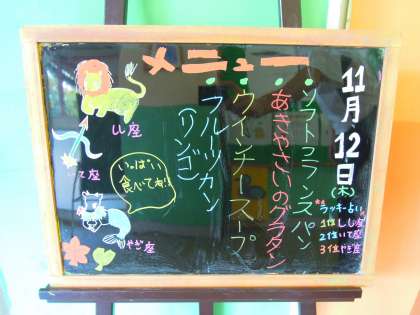 メニュー
11月12日
(木)
・ソフトフランスパン
・あきやさいのグラタン
・ウインナースープ
・フルーツカン
(リンゴ)
ラッキー占い
1位しし座
2位いて座
3位やぎ座
しし座
いて座
いっぱい
食べてね!!
やぎ座